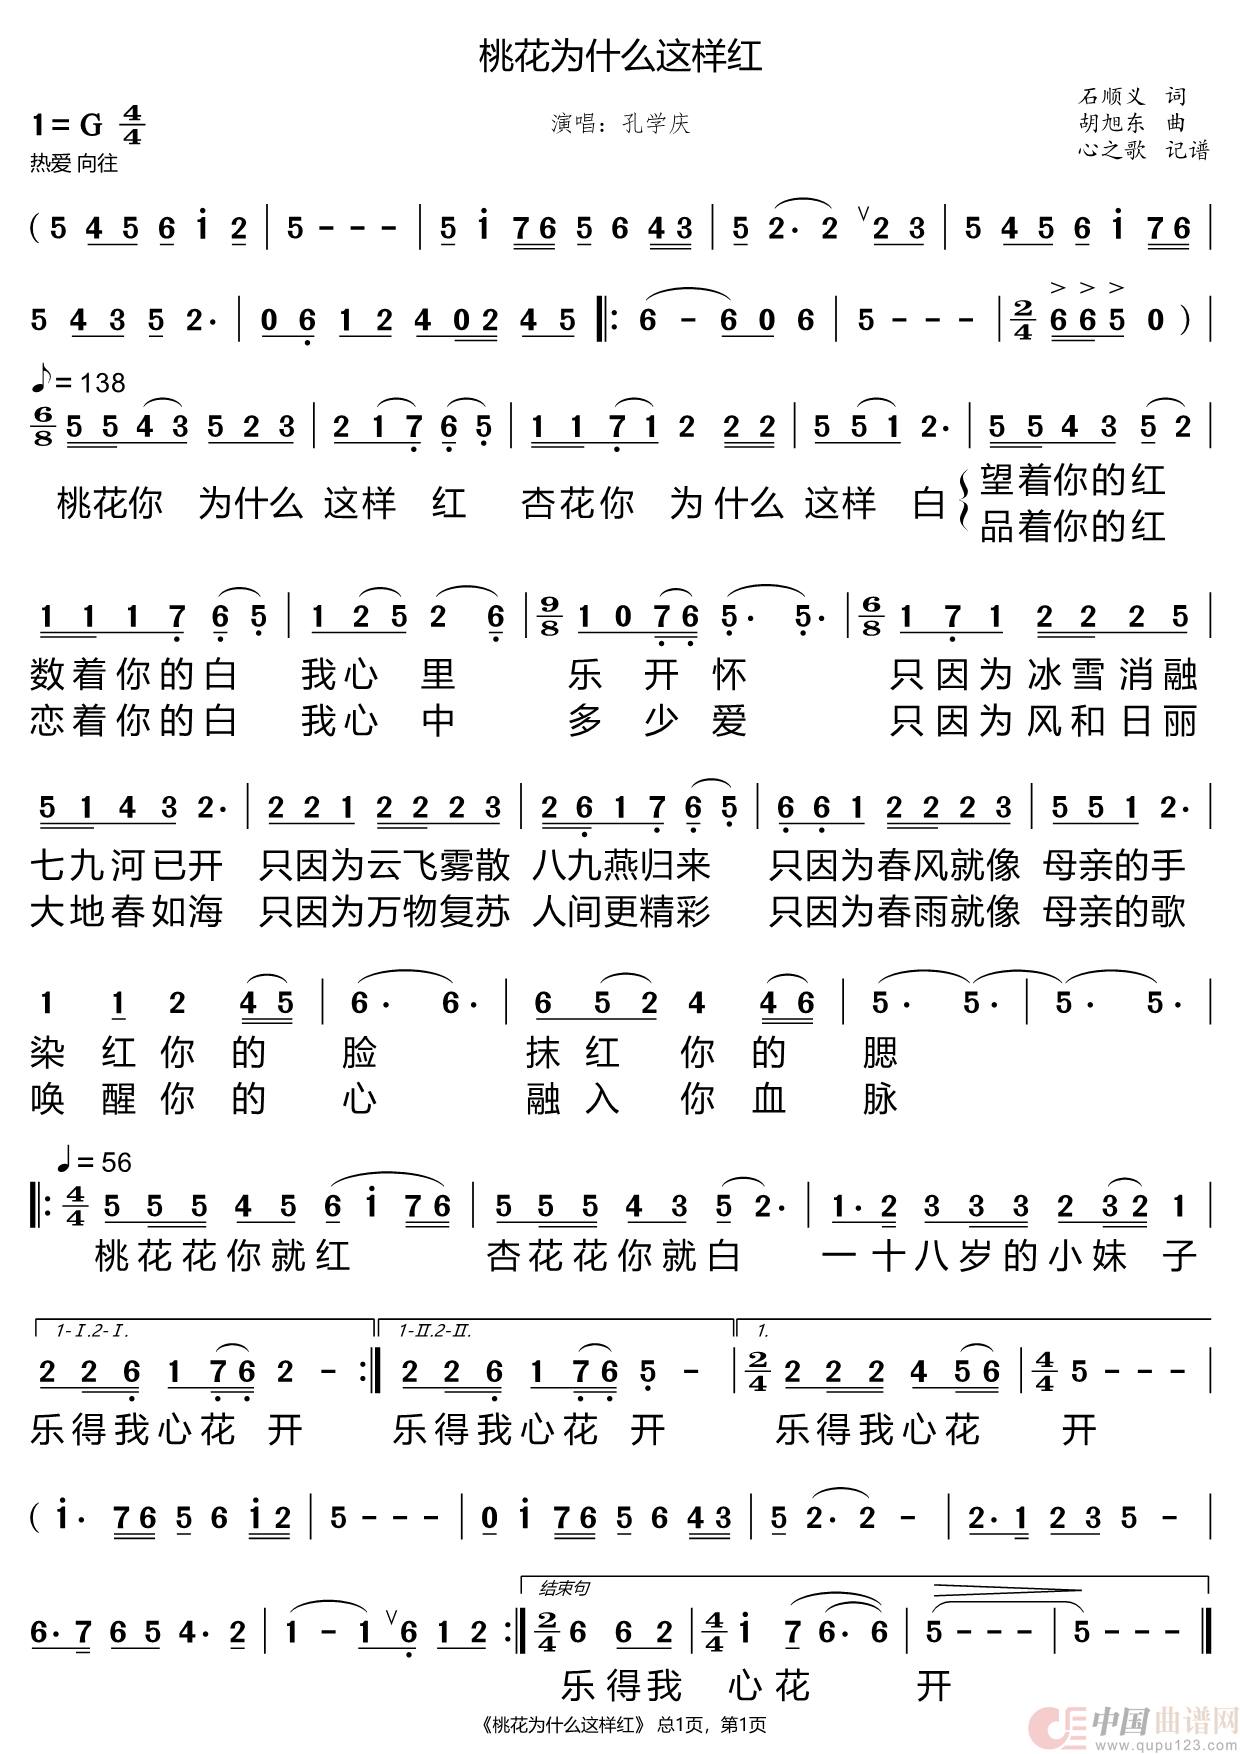 桃花为什么这样红
1=G 4/4
热爱 向往
演唱：孔学庆
石顺义 词
胡旭东 曲
心之歌 记谱
( 5 4 5 6 i 2 | 5 - - - | 5 i 7 6 5 6 4 3 | 5 2· 2 ∨ 2 3 | 5 4 5 6 i 7 6 |
5 4 3 5 2· | 0 6 1 2 4 0 2 4 5 ‖: 6 - 6 0 6 | 5 - - - | 2/4 6 6 5 0 ) |
♪= 138
6/8 5 5 4 3 5 2 3 | 2 1 7 6 5 | 1 1 7 1 2 2 2 | 5 5 1 2· | 5 5 4 3 5 2 |
桃花你 为什么 这样 红 杏花你 为什么 这样 白 望着你的红
品着你的红
1 1 1 7 6 5 | 1 2 5 2 6 | 9/8 1 0 7 6 5· 5· | 6/8 1 7 1 2 2 2 5 |
数着你的白 我心里 乐开怀 只因为冰雪消融
恋着你的白 我心中 多少爱 只因为风和日丽
5 1 4 3 2· | 2 2 1 2 2 2 3 | 2 6 1 7 6 5 | 6 6 1 2 2 2 3 | 5 5 1 2· |
七九河已开 只因为云飞雾散 八九燕归来 只因为春风就像 母亲的手
大地春如海 只因为万物复苏 人间更精彩 只因为春雨就像 母亲的歌
1 1 2 4 5 | 6· 6· | 6 5 2 4 4 6 | 5· 5· | 5· 5· |
染红你的脸 抹红你的腮
唤醒你的心 融入你血脉
♩= 56
‖: 4/4 5 5 5 4 5 6 i 7 6 | 5 5 5 4 3 5 2· | 1· 2 3 3 3 2 3 2 1 |
桃花花你就红 杏花花你就白 一十八岁的小妹子
1-Ⅰ.2-Ⅰ. 1-Ⅱ.2-Ⅱ. 1.
2 2 6 1 7 6 2 - :‖ 2 2 6 1 7 6 5 - | 2/4 2 2 2 4 5 6 | 4/4 5 - - - |
乐得我心花开 乐得我心花开 乐得我心花开
( i· 7 6 5 6 i 2 | 5 - - - | 0 i 7 6 5 6 4 3 | 5 2· 2 - | 2· 1 2 3 5 - |
结束句
6· 7 6 5 4· 2 | 1 - 1 ∨ 6 1 2 :‖ 2/4 6 6 2 | 4/4 i 7 6· 6 | 5 - - - | 5 - - - ‖
乐得我 心花 开
《桃花为什么这样红》 总1页，第1页
中国曲谱网
www.qupu123.com